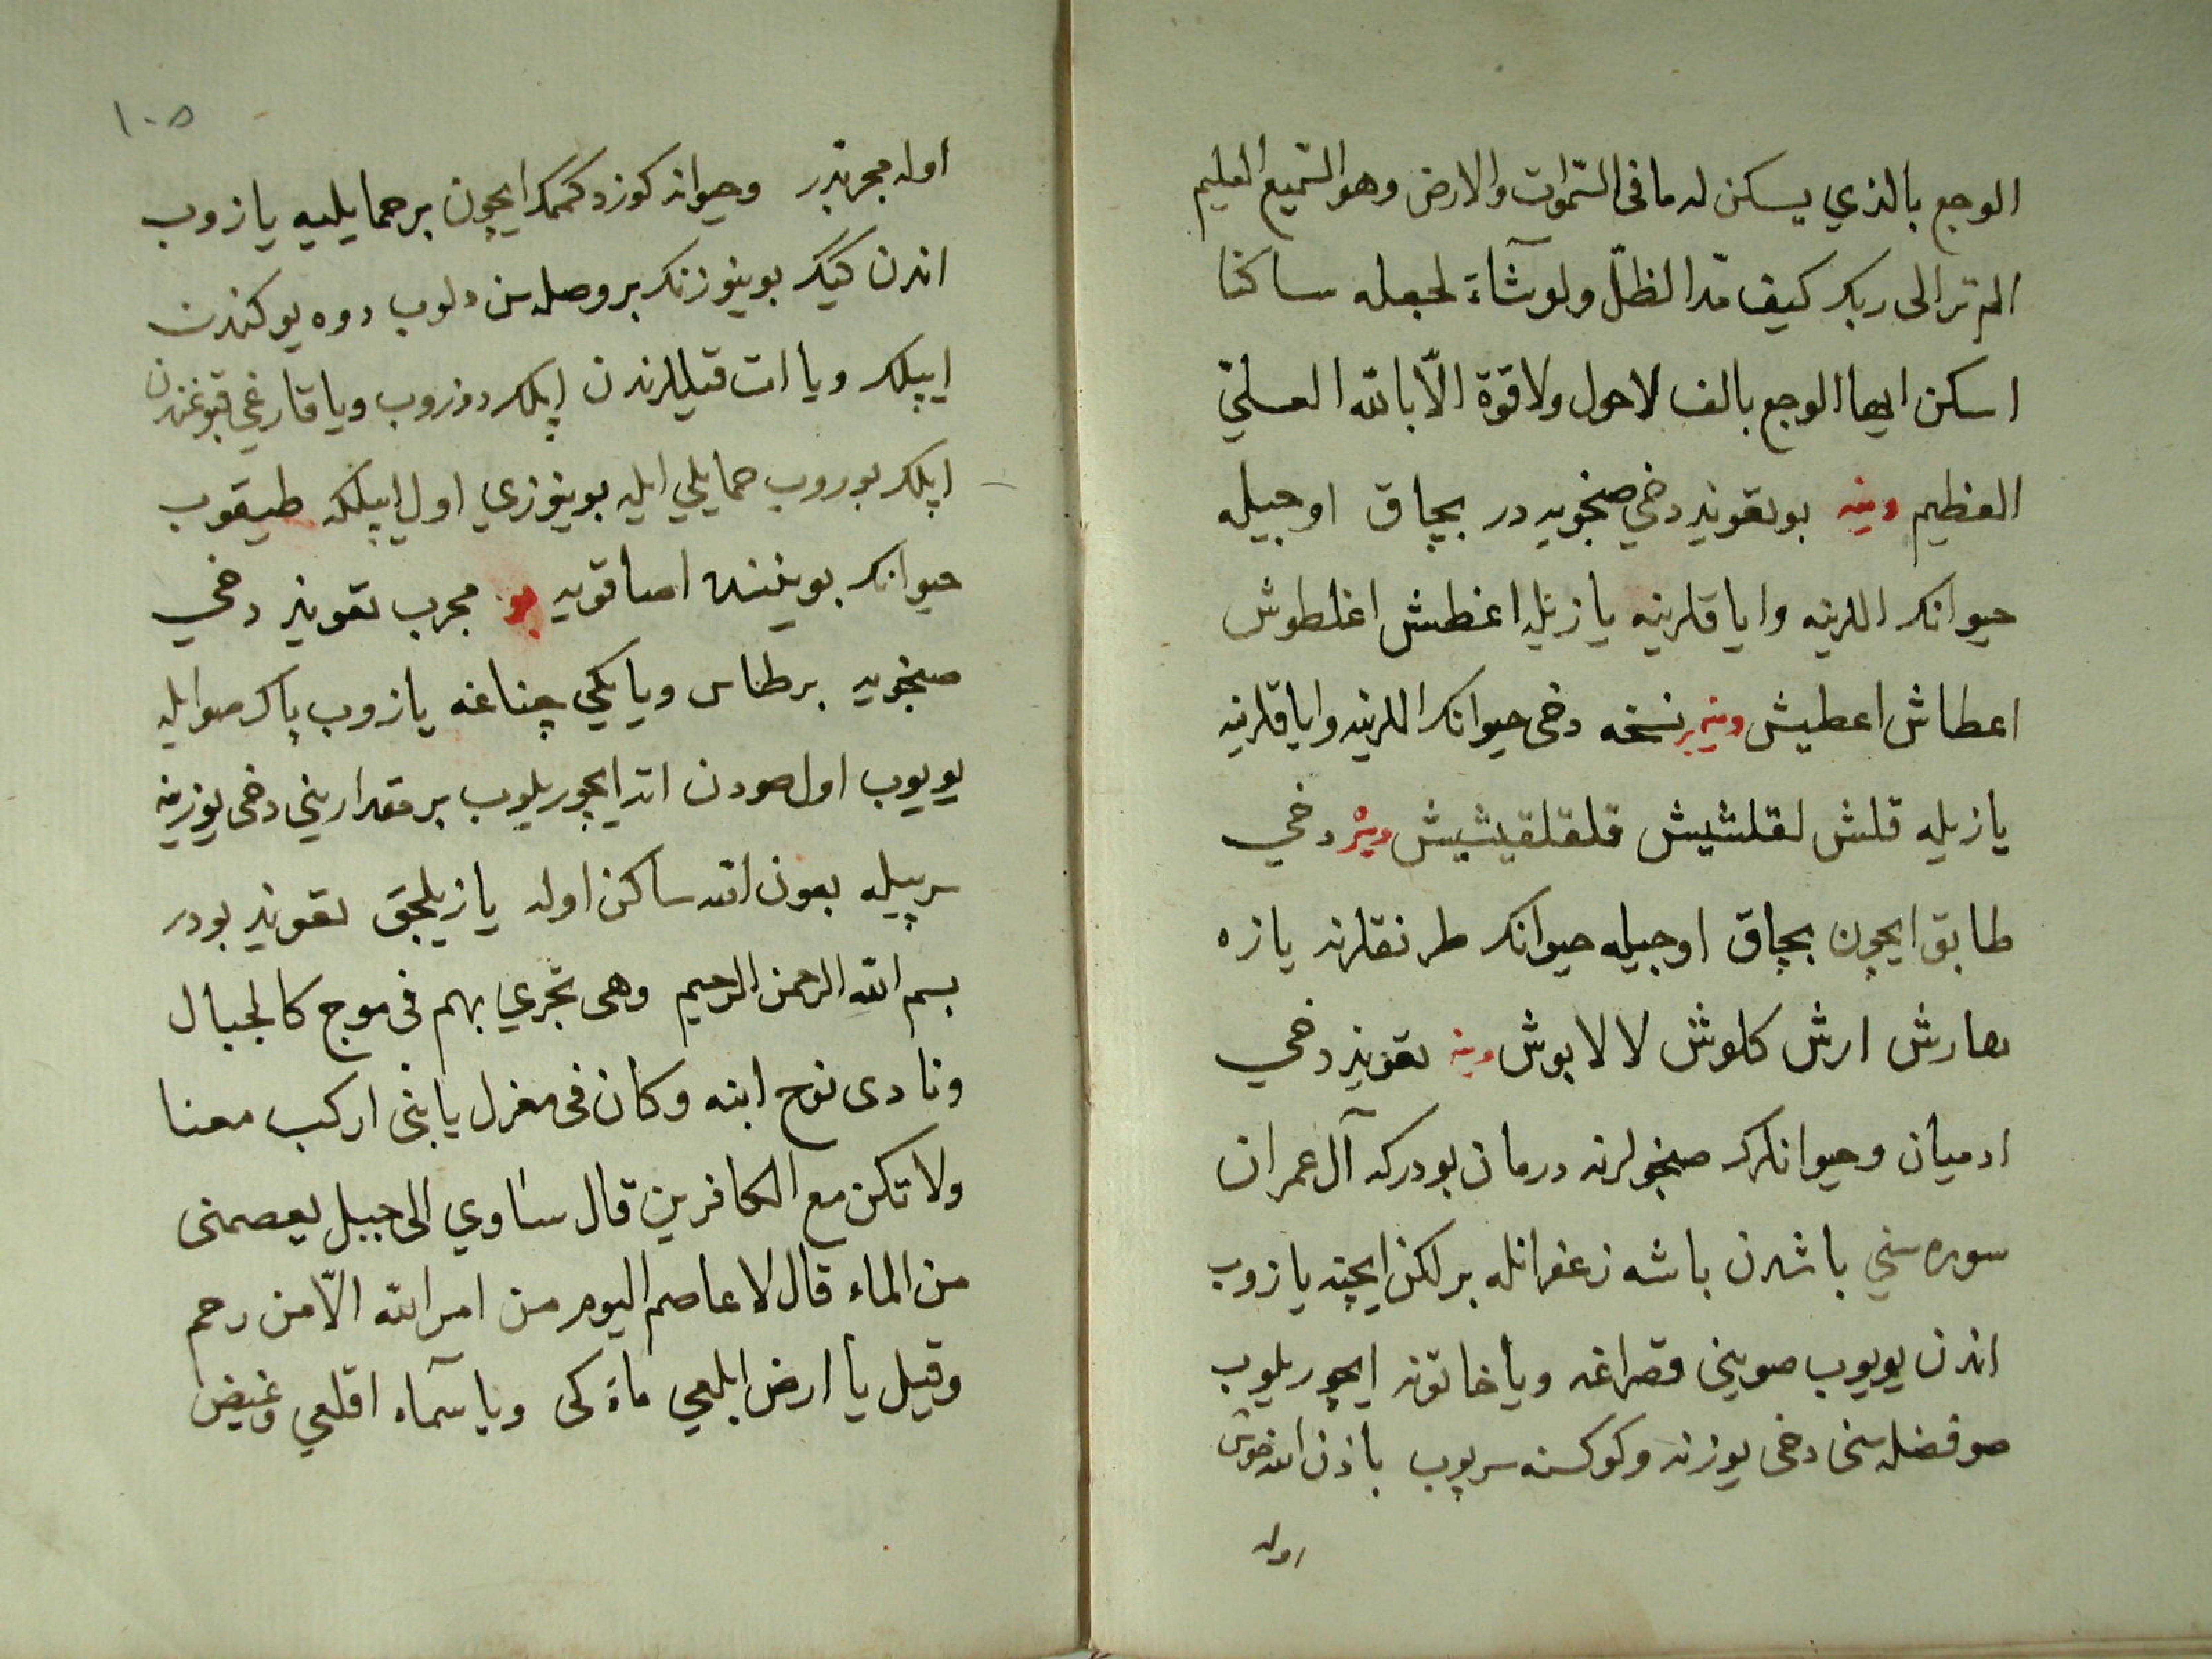 الوجع بالذي يسكن له ما فى السّموات والارض وهو السّميع العليم
الم تر الى ربك كيف مدّ الظلّ ولو شآء لجعله ساكنا
اسكن ايها الوجع بالف لا حول ولا قوة الّا بالله العليّ
العظيم وينه بو تعويذ دخي صنجويه در بچاق اوجيله
حيوانك اللرينه واياقلرينه يازيله اغطش اغلطوش
اعطاش اعطيش وينه بر نسخه دخى حيوانك اللرينه واياقلرينه
يازيله قلش لقلشيش قلقلقيشيش دخي
طابق ايچون بچاق اوجيله حيوانك طرنقلرنه يازه
بهارش ارش كلوش لا لا بوش وينه تعويذ دخي
ادميان وحيوانلرك صنجولرنه درمان بودركه آل عمران
سوره سني باشدن باشه زعفرانله بر لكن ايچنه يازوب
اندن يويوب صويني قصراغه ويا خاتونه ايچوريلوب
صو فضله سنى دخى يوزنه وكوكسنه سرپوب باذن الله خوش
اوله
١٠٥
اوله مجربدر وحيوانه كوز دكممك ايچون بر حمايليه يازوب
اندن كيك بوينوزنك بر وصله سن دلوب دوه يوكندن
ايپلك ويا ات قيللرندن اپلك دوزوب ويا قارغي قبوغندن
اپلك بوروب حمايلي ايله بوينوزي اول ايپلكه طيقوب
حيوانك بويننه اصا قويه بو مجرب تعويذ دخي
صنجويه بر طاس ويا يكي چناغه يازوب پاك صو ايله
يويوب اول صودن اته ايچوريلوب بر مقدارينى دخى يوزينه
سرپيله بعون الله ساكن اوله يازيلجق تعويذ بودر
بسم الله الرحمن الرحيم وهى تجري بهم فى موج كالجبال
ونادى نوح ابنه وكان فى معزل يا بنى اركب معنا
ولا تكن مع الكافرين قال ساوي الى جبل يعصمنى
من الماء قال لا عاصم اليوم من امر الله الّا من رحم
وقيل يا ارض ابلعي ماءكى ويا سمآء اقلعي وغيض